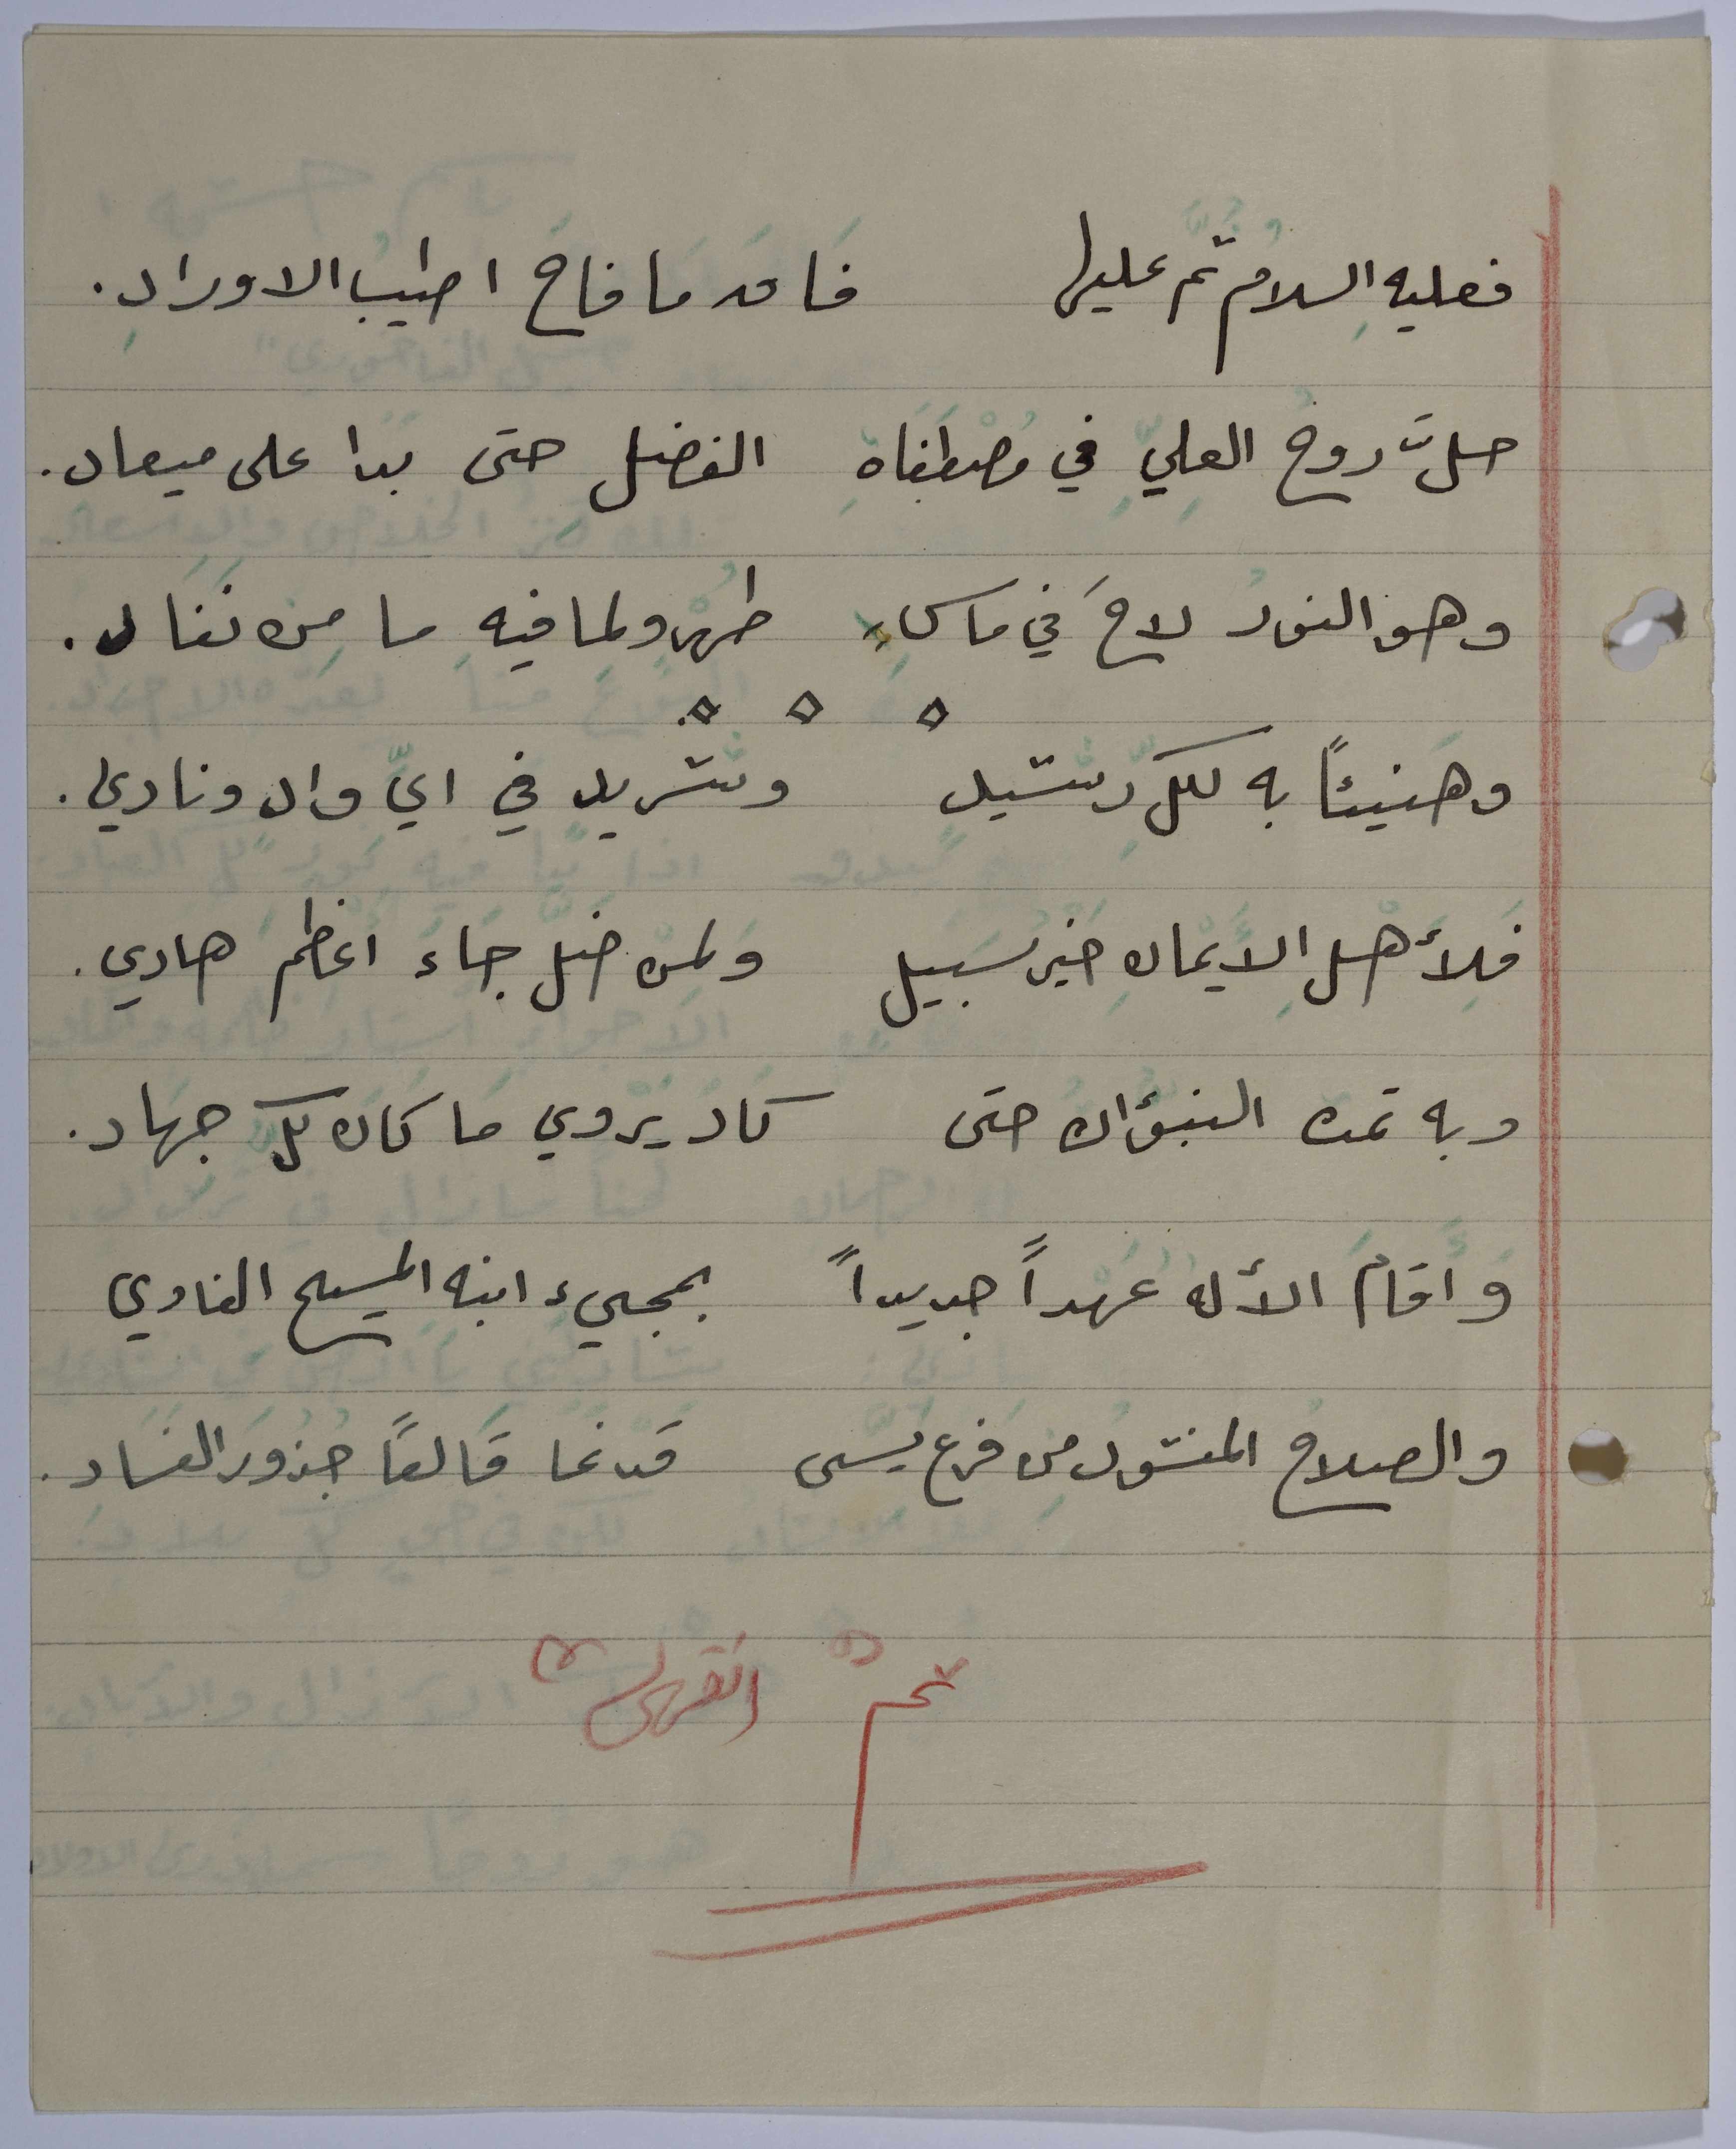 فعليه السلام ثم عليها فاق ما فاح اطيب الاوراد.
حلّت روح العليّ في مصطفاة الفضل حتى بدا على ميعاد.
وهو النور لاحَ في ماسكاءِ طهر ولما فيه ما من نفاد.
وهنيئاً به لكل رشيد وشريد في ايّ واد ونادي.
فلأهل الايمان خير سبيل ولمن ضل جاء اعظم هادي.
وبه تمت النبؤات حتى كاد يروي ما كان كل جهاد.
واقام الأله عهداً جديداً بمجيء ابنه المسيح الفادي
والصلاح المنشود من فرع يسى قد نما قالعاً جذور الفساد.
تم انتهى